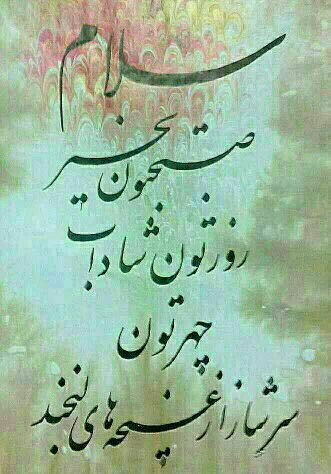 سلام
صبحتون بخیر
روزتون شاداب
چهرتون
سرشار از غنچه های لبخند